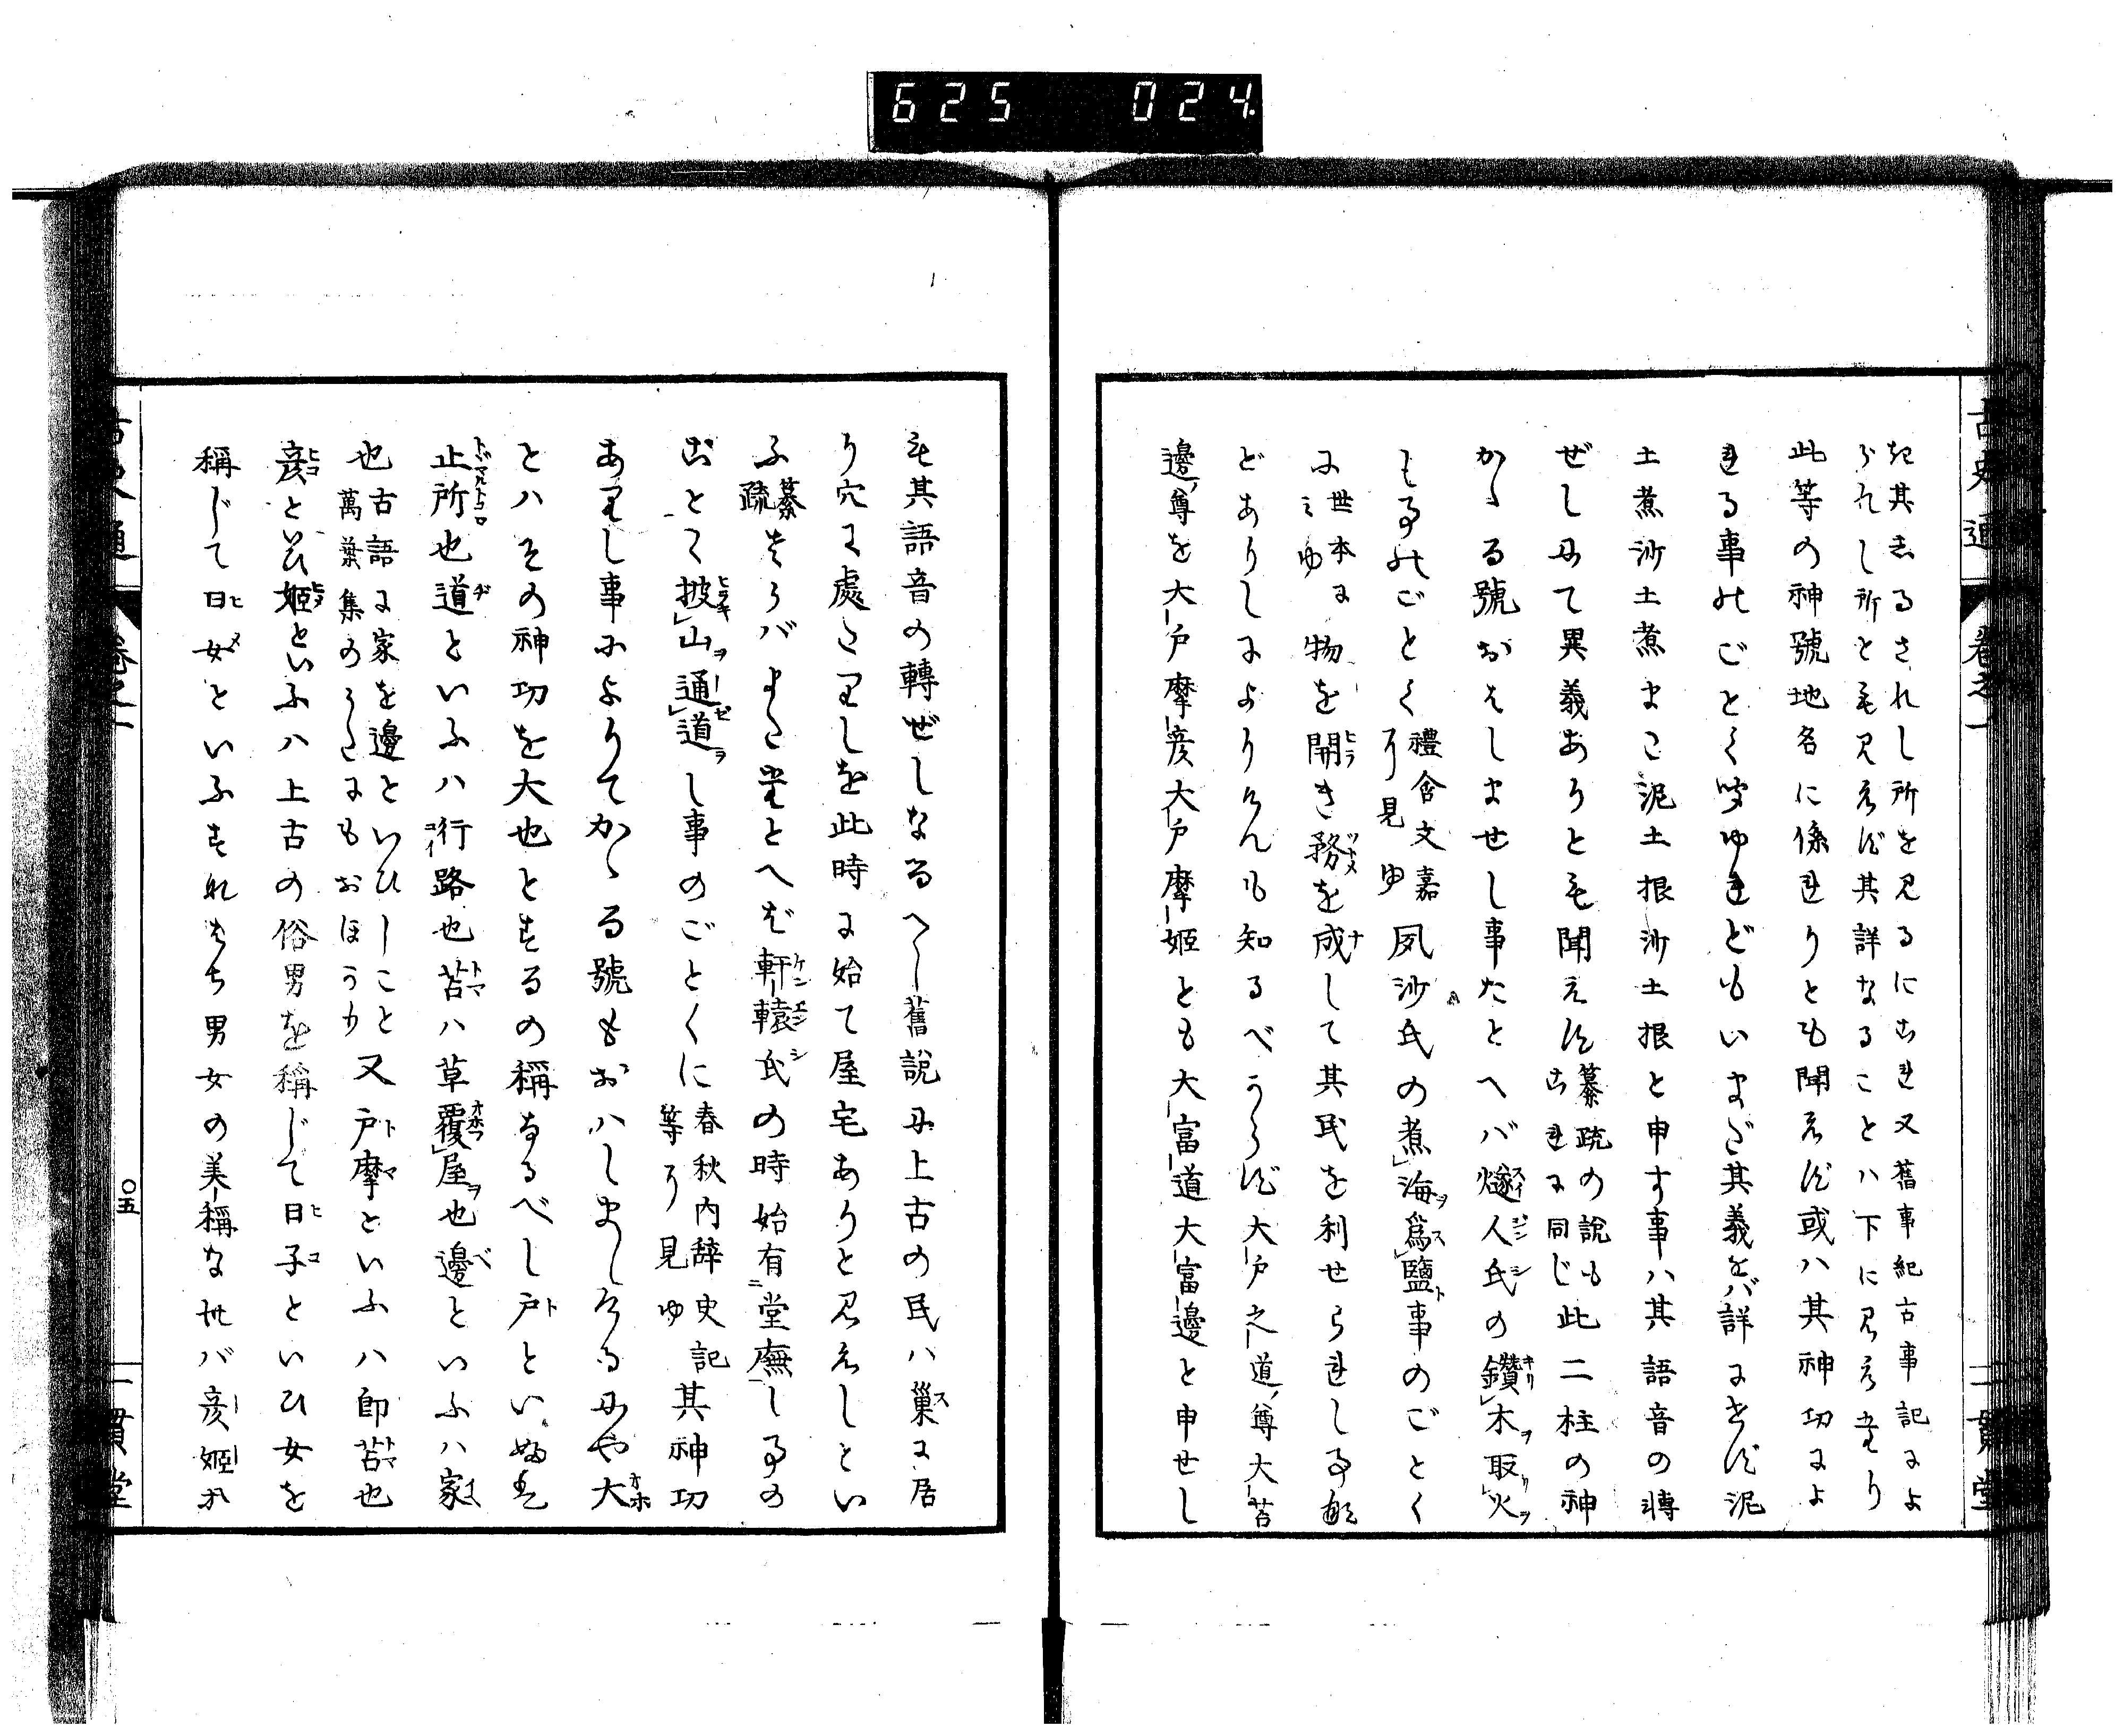 625 024
古史通 卷之一 一貫堂
紀其しるされし所を見るにこれ又舊事紀古事記によ
られし所とも見えず其詳なることハ下に見えたり
此等の神號地名に係れりとも聞えず或ハ其神功によ
れる事のごとく聞ゆれどもいまだ其義をバ詳にせず泥
土煮沙土煮また泥土根沙土根と申す事ハ其語音の轉
ぜしにて異義ありとも聞えず纂疏の說もこれに同じ此二柱の神
かゝる號おはしませし事たとへバ燧人氏の鑽木取火
し事のごとく禮含文嘉に見ゆ夙沙氏の煮海爲鹽事のごとく
世本にみゆ物を開き務を成して其民を利せられし事
どありしによりけんも知るべからず大戸之道尊大苫
邊尊を大戸摩彦大戸摩姬とも大富道大富邊と申せし
も其語音の轉ぜしなるべし舊說に上古の民ハ巢に居
り穴に處たりしを此時に始て屋宅ありと見えしとい
ふ纂疏さらバまたたとへば軒轅氏の時始有堂廡し事の
ごとく披山通道し事のごとくに春秋内辞史記等に見ゆ其神功
ありし事によりてかゝる號もおハしましけるにや大
とハその神功を大也とするの稱なるべし戸といふハ
止所也道といふハ行路也苫ハ草覆屋也邊といふハ家
也古語に家を邊といひしこと萬葉集のうたにもおほうか又戸摩といふハ即苫也
彦といひ姬といふハ上古の俗男を稱じて日子といひ女を
稱じて日女といふすなはち男女の美稱なれバ彦姬ハ
古史通 卷之一 〇五 一貫堂